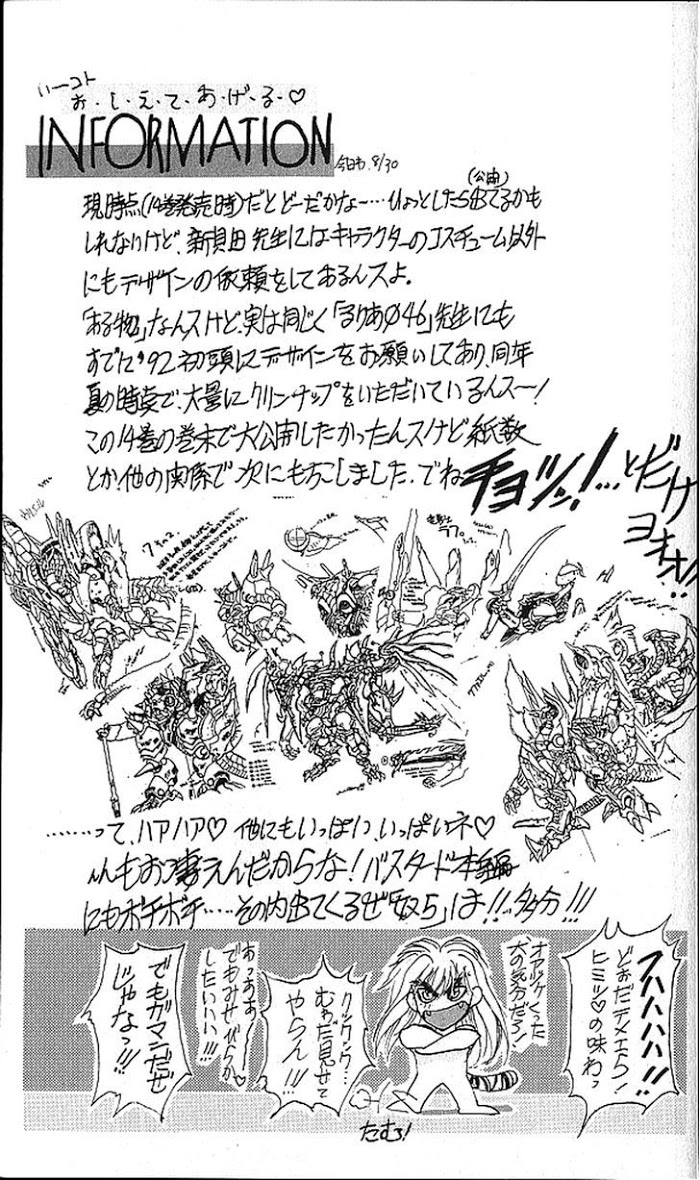 いーコト
お・し・え・て・あ・げ・る・♡
INFORMATION
今日も、8/30
(公申)
現時点(14巻発売時)だとどーだかな〜…ひょっとしたら出てるかも
しれないけど、新貝田先生にはキャラクターのコスチューム以外
にもデザインの依頼をしてあるんスよ。
「ある物」なんスけど、実は同じく「るりあ046」先生にも
すでに'92初頭にデザインをお願いしてあり、同年
夏の時点で、大量にクリンナップをいただいているんスー!
この14巻の巻末で大公開したかったんスけど紙数
とか他の関係で次にもちこしました。でね
チョッン!…とだけ
ヨキオ!!
………って、ハアハア♡ 他にもいっぱい、いっぱいネ♡
んもお凄えんだからな!バスタード本編
にもボチボチ……その内出てくるぜ「奴ら」は!!…多分!!!
フハハハハ!!
どぉだテメエら!
ヒミツ♡の味わっ
オアズケくった
犬の気分だろ!
クックック…
むぁだ見せて
やらん!!!
あっああ〜
でもみせびらか♡
したいハハ!!!
でもガマンだぜ
じゃなっ!!!
たむろ!